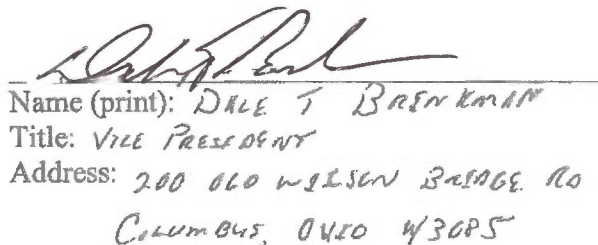 Name (print): DALE T BRINKMAN
Title: VICE PRESIDENT
Address: 200 OLD WILSON BRIDGE RD
COLUMBUS, OHIO 43085